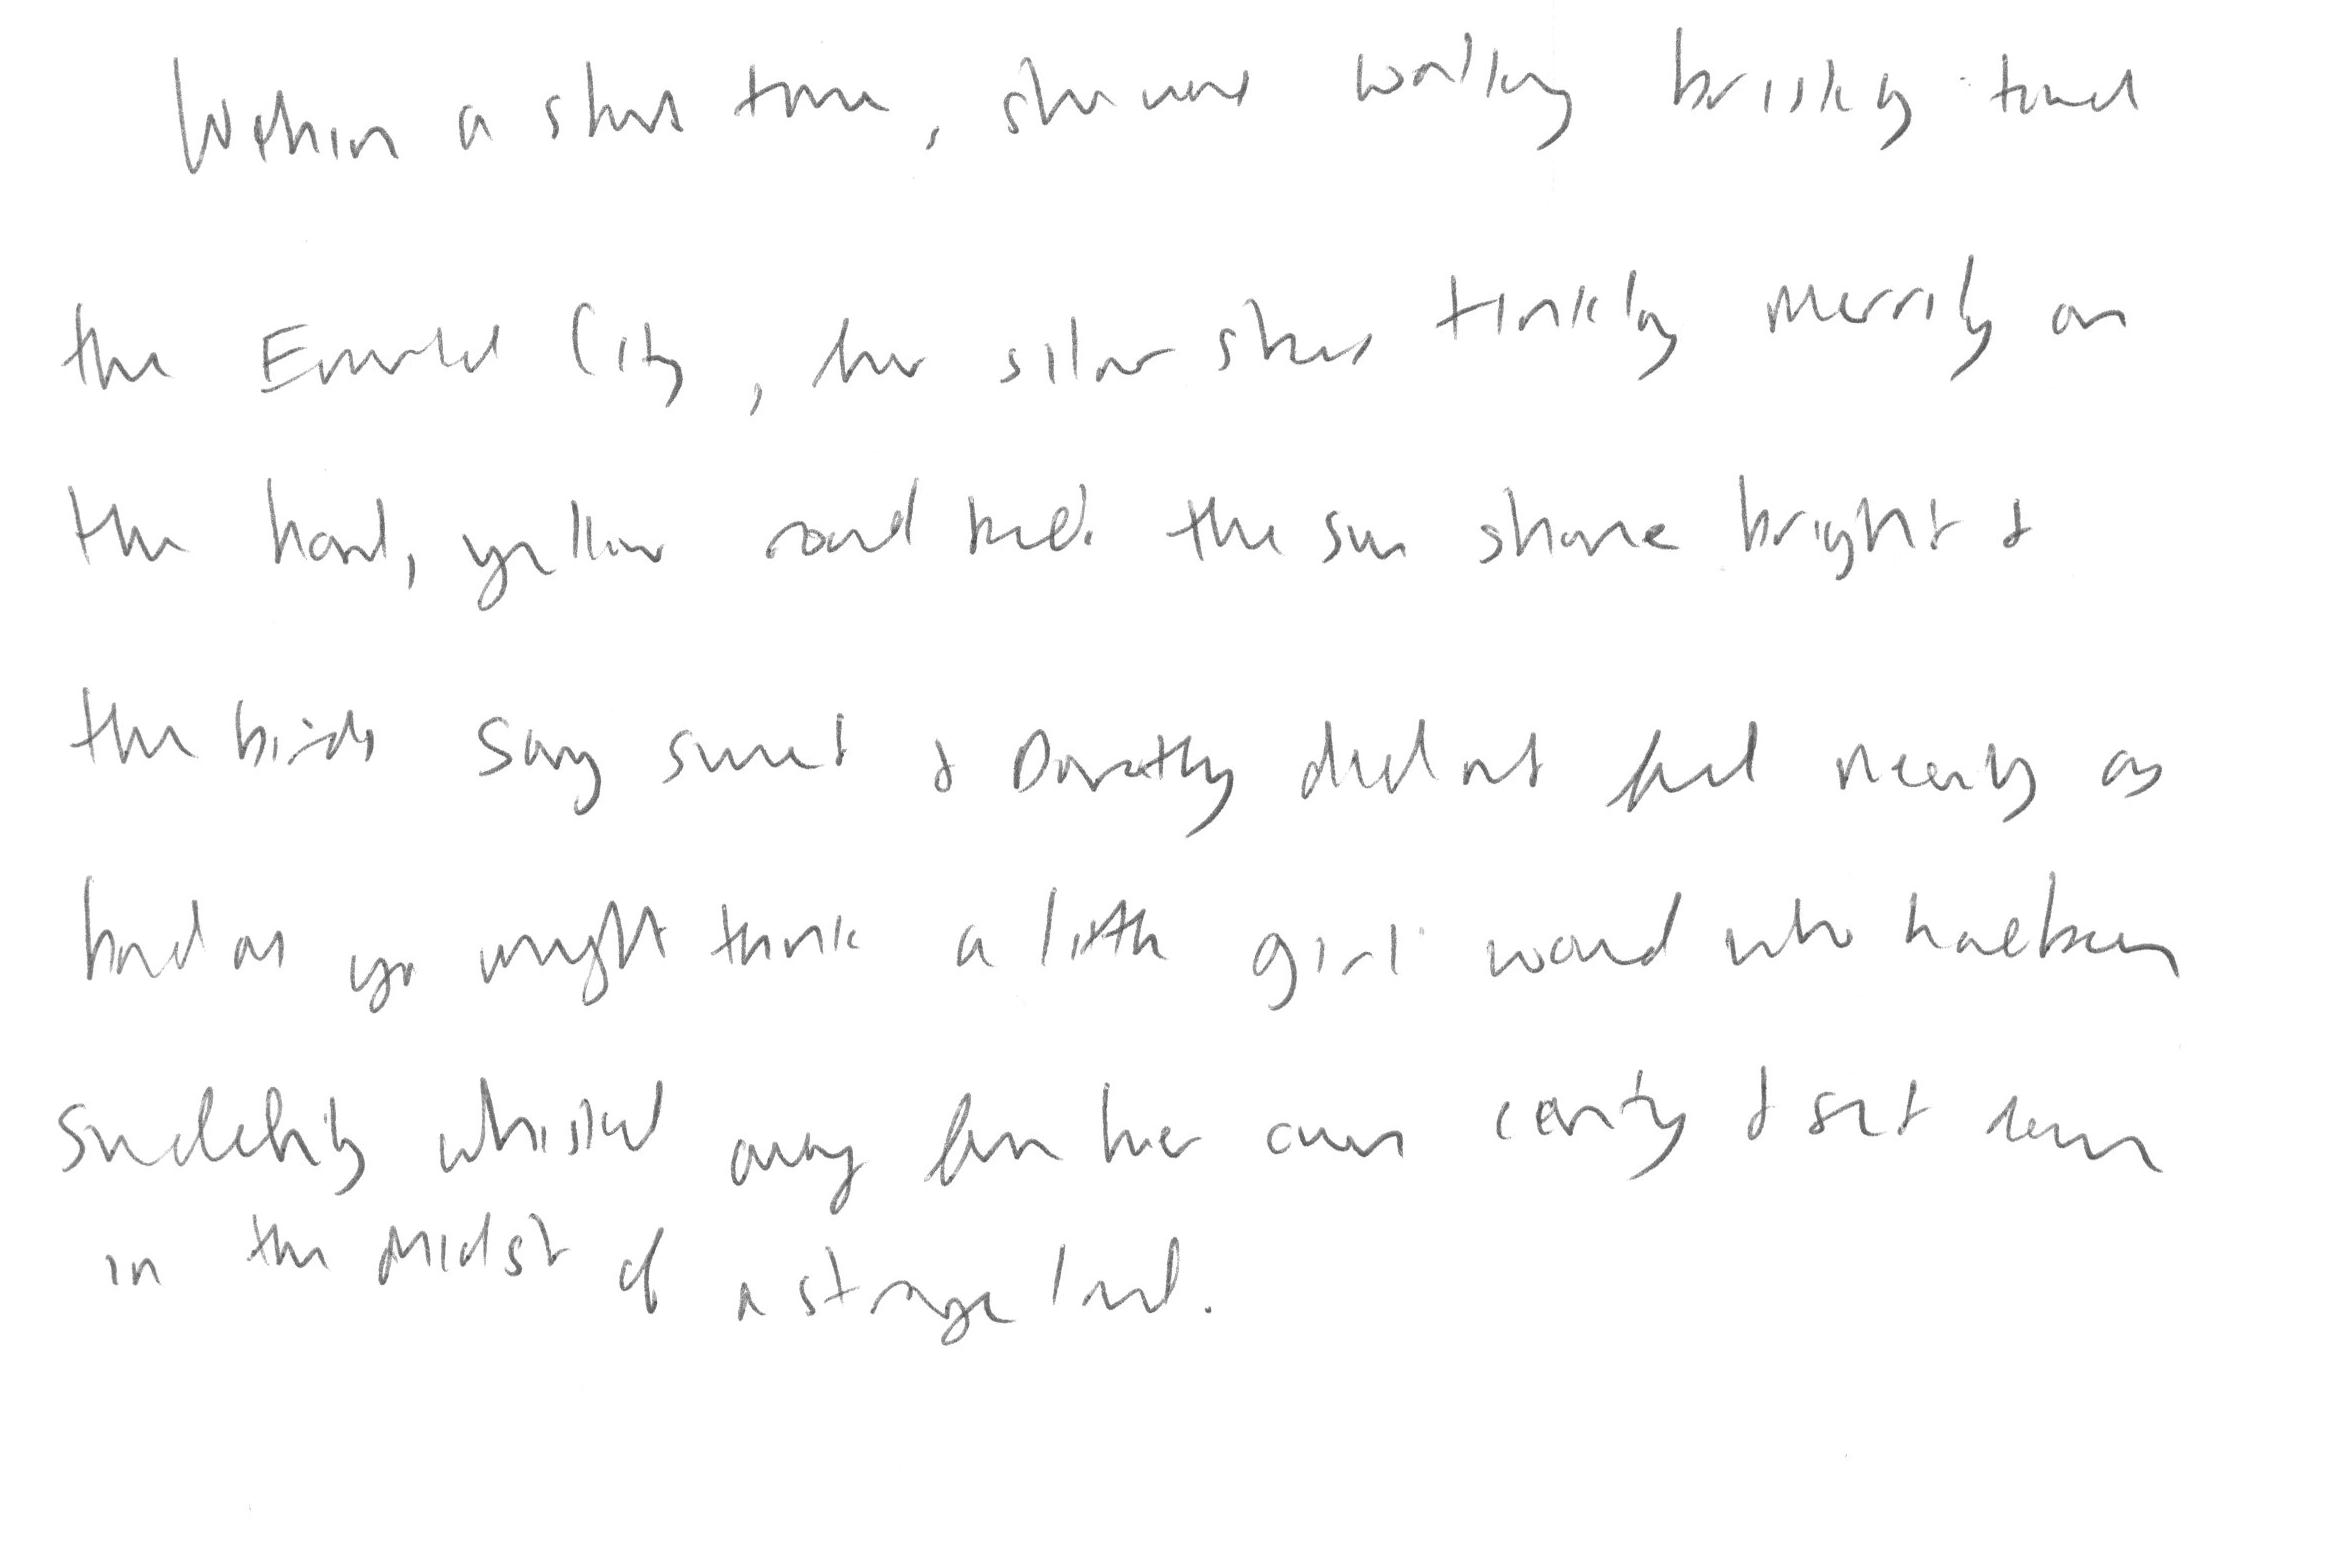 Within a short time, she was walking briskly toward
the Emerald City, her silver shoes tinkling merrily on
the hard, yellow road bed. The sun shone bright &
the birds sang sweet & Dorothy did not feel nearly as
bad as you might think a little girl would who had been
suddenly whisked away from her own country & set down
in the midst of a strange land.